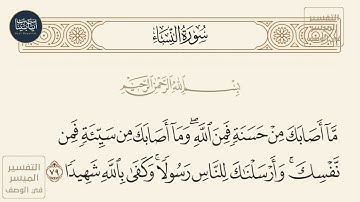 سُورَةُ النِّسَاءِ
بِسْمِ اللَّهِ الرَّحْمَنِ الرَّحِيمِ
مَّآ أَصَابَكَ مِنْ حَسَنَةٍ فَمِنَ ٱللَّهِۖ وَمَآ أَصَابَكَ مِن سَيِّئَةٍ فَمِن
نَّفْسِكَۚ وَأَرْسَلْنَٰكَ لِلنَّاسِ رَسُولًاۚ وَكَفَىٰ بِٱللَّهِ شَهِيدًا ٧٩
التفسير
الميسر
في الوصف